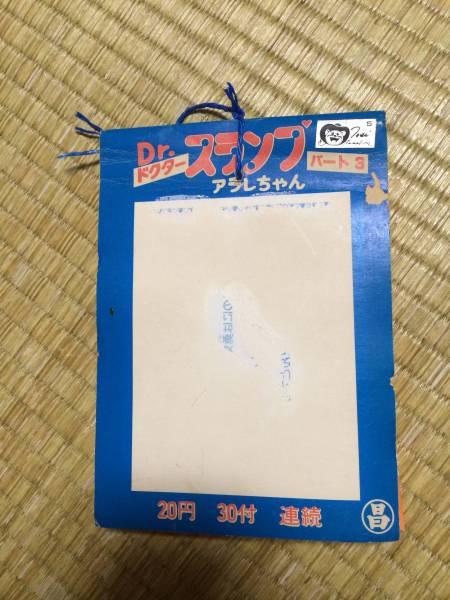 Dr.
ドクター
スランプ
アラレちゃん
パート3
S
20円 30付 連続
昌